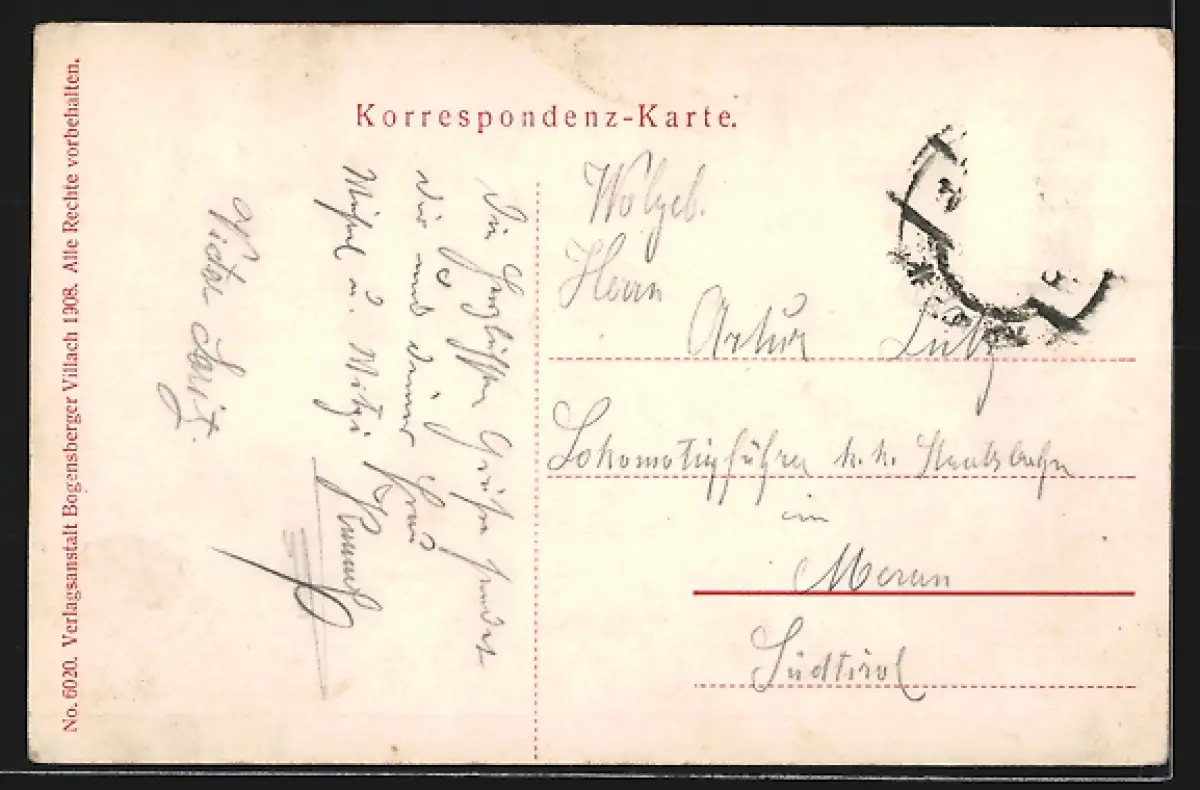 Korrespondenz-Karte.
No. 6020. Verlagsanstalt Bogensberger Villach 1908. Alle Rechte vorbehalten.
Die herzlichsten Grüße sendet
dir und deiner Frau
Michl u. Mitzi
Wolgeb.
Herrn
Artur Lutz
Lokomotivführer k. k. Staatsbahn
in
Meran
Südtirol